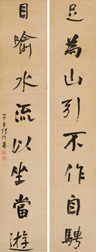 足為山引不作自騁
目喻水流以坐當遊